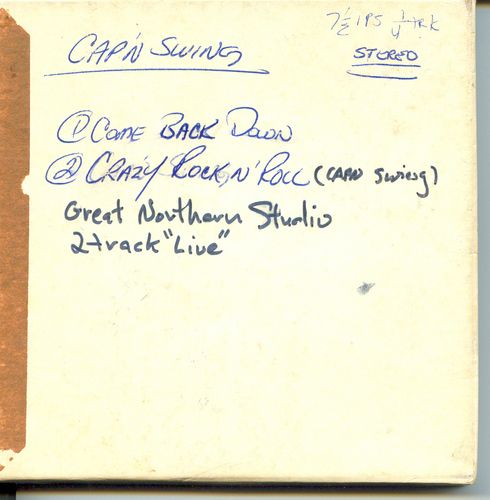 7 1/2 IPS 1/4 trk
STEREO
CAP'N SWING
① COME BACK DOWN
② CRAZY ROCK N' ROLL (CAPN Swing)
Great Northern Studio
2-track "Live"